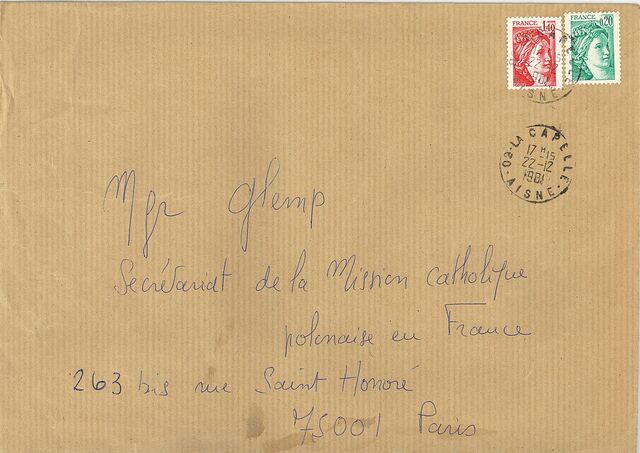 FRANCE 1,40
FRANCE 0,20
02-LA CAPELLE
17H-15
22-12
1981
AISNE
Mgr Glemp
Secrétariat de la Mission Catholique
polonaise en France
263 bis rue Saint Honoré
75001 Paris